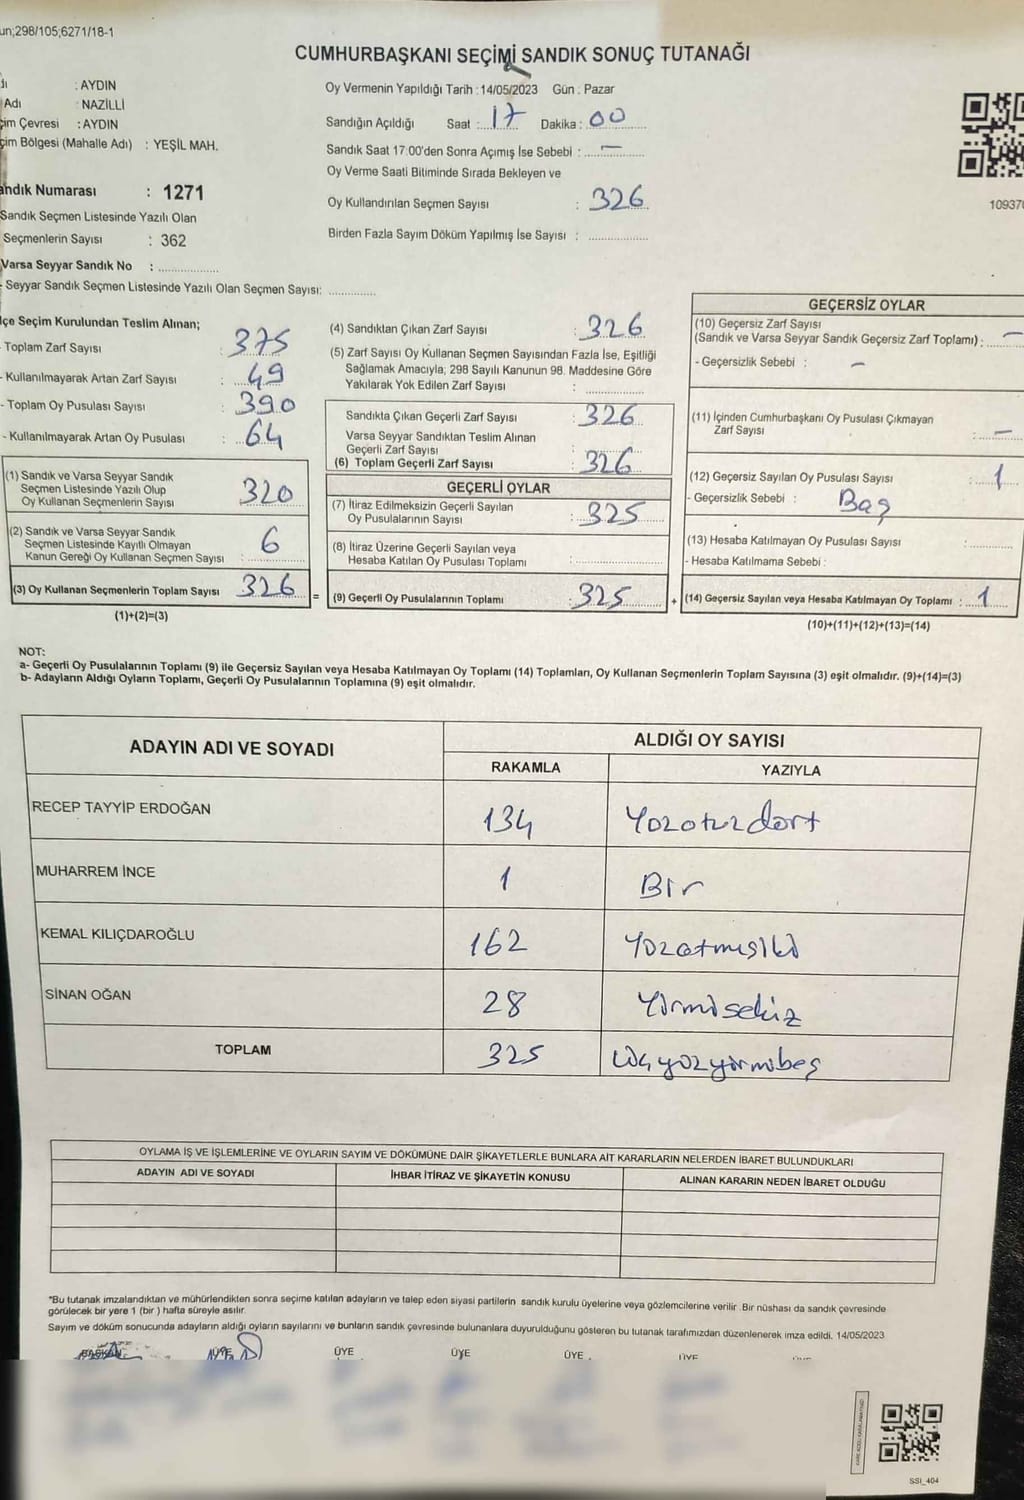 un;298/105;6271/18-1
CUMHURBAŞKANI SEÇİMİ SANDIK SONUÇ TUTANAĞI
: AYDIN
Adı : NAZİLLİ
çim Çevresi : AYDIN
çim Bölgesi (Mahalle Adı) : YEŞİL MAH.
andık Numarası : 1271
Sandık Seçmen Listesinde Yazılı Olan
Seçmenlerin Sayısı : 362
Varsa Seyyar Sandık No :
- Seyyar Sandık Seçmen Listesinde Yazılı Olan Seçmen Sayısı:
Oy Vermenin Yapıldığı Tarih : 14/05/2023 Gün : Pazar
Sandığın Açıldığı Saat : 17 Dakika : 00
Sandık Saat 17:00'den Sonra Açımış İse Sebebi : —
Oy Verme Saati Bitiminde Sırada Bekleyen ve
Oy Kullandırılan Seçmen Sayısı : 326
Birden Fazla Sayım Döküm Yapılmış İse Sayısı :
10937
lçe Seçim Kurulundan Teslim Alınan;
- Toplam Zarf Sayısı : 375
- Kullanılmayarak Artan Zarf Sayısı : 49
- Toplam Oy Pusulası Sayısı : 390
- Kullanılmayarak Artan Oy Pusulası : 64
(1) Sandık ve Varsa Seyyar Sandık
Seçmen Listesinde Yazılı Olup
Oy Kullanan Seçmenlerin Sayısı 320
(2) Sandık ve Varsa Seyyar Sandık
Seçmen Listesinde Kayıtlı Olmayan
Kanun Gereği Oy Kullanan Seçmen Sayısı : 6
(3) Oy Kullanan Seçmenlerin Toplam Sayısı 326 =
(1)+(2)=(3)
(4) Sandıktan Çıkan Zarf Sayısı : 326
(5) Zarf Sayısı Oy Kullanan Seçmen Sayısından Fazla İse, Eşitliği
Sağlamak Amacıyla; 298 Sayılı Kanunun 98. Maddesine Göre
Yakılarak Yok Edilen Zarf Sayısı :
Sandıkta Çıkan Geçerli Zarf Sayısı : 326
Varsa Seyyar Sandıktan Teslim Alınan
Geçerli Zarf Sayısı :
(6) Toplam Geçerli Zarf Sayısı : 326
GEÇERLİ OYLAR
(7) İtiraz Edilmeksizin Geçerli Sayılan
Oy Pusulalarının Sayısı : 325
(8) İtiraz Üzerine Geçerli Sayılan veya
Hesaba Katılan Oy Pusulası Toplamı :
(9) Geçerli Oy Pusulalarının Toplamı : 325 +
GEÇERSİZ OYLAR
(10) Geçersiz Zarf Sayısı
(Sandık ve Varsa Seyyar Sandık Geçersiz Zarf Toplamı) : —
- Geçersizlik Sebebi : —
(11) İçinden Cumhurbaşkanı Oy Pusulası Çıkmayan
Zarf Sayısı : —
(12) Geçersiz Sayılan Oy Pusulası Sayısı : 1
- Geçersizlik Sebebi : Baş
(13) Hesaba Katılmayan Oy Pusulası Sayısı :
- Hesaba Katılmama Sebebi :
(14) Geçersiz Sayılan veya Hesaba Katılmayan Oy Toplamı : 1
(10)+(11)+(12)+(13)=(14)
NOT:
a- Geçerli Oy Pusulalarının Toplamı (9) ile Geçersiz Sayılan veya Hesaba Katılmayan Oy Toplamı (14) Toplamları, Oy Kullanan Seçmenlerin Toplam Sayısına (3) eşit olmalıdır. (9)+(14)=(3)
b- Adayların Aldığı Oyların Toplamı, Geçerli Oy Pusulalarının Toplamına (9) eşit olmalıdır.
ADAYIN ADI VE SOYADI
ALDIĞI OY SAYISI
RAKAMLA YAZIYLA
RECEP TAYYİP ERDOĞAN 134 Yüzotuzdört
MUHARREM İNCE 1 Bir
KEMAL KILIÇDAROĞLU 162 Yüzatmışiki
SİNAN OĞAN 28 Yirmisekiz
TOPLAM 325 Üçyüzyirmibeş
OYLAMA İŞ VE İŞLEMLERİNE VE OYLARIN SAYIM VE DÖKÜMÜNE DAİR ŞİKAYETLERLE BUNLARA AİT KARARLARIN NELERDEN İBARET BULUNDUKLARI
ADAYIN ADI VE SOYADI İHBAR İTİRAZ VE ŞİKAYETİN KONUSU ALINAN KARARIN NEDEN İBARET OLDUĞU
*Bu tutanak imzalandıktan ve mühürlendikten sonra seçime katılan adayların ve talep eden siyasi partilerin sandık kurulu üyelerine veya gözlemcilerine verilir. Bir nüshası da sandık çevresinde
görülecek bir yere 1 (bir ) hafta süreyle asılır.
Sayım ve döküm sonucunda adayların aldığı oyların sayılarını ve bunların sandık çevresinde bulunanlara duyurulduğunu gösteren bu tutanak tarafımızdan düzenlenerek imza edildi. 14/05/2023
BAŞKAN ÜYE ÜYE ÜYE ÜYE ÜYE
SSİ_404